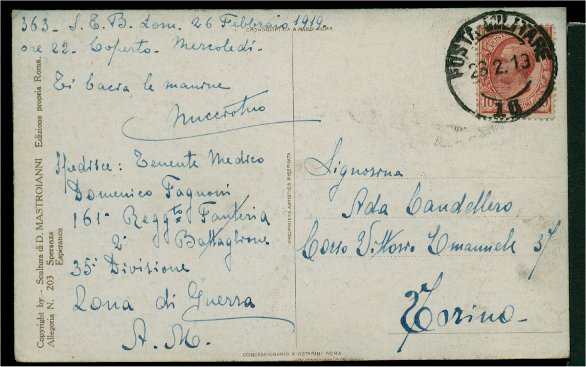 363. S.E.B. Lom. 26 Febbraio 1919.
ore 22. Coperto. Mercoledì.
Ti bacia le manine
Spedisce: Tenente Medico
Domenico Fagnoni
161° Reggto Fanteria
2° Battaglione
35ª Divisione
Zona di Guerra
A. M.
Copyright by - Scultura di D. MASTROIANNI Edizione propria Roma.
Allegoria N. 203 Speranza
Esperance
PROPRIETÀ ARTISTICA RISERVATA
CONCESSIONARIO A VISTARINI ROMA
POSTA MILITARE
26.2.19
10
Signorina
Ada Candellero
Corso Vittorio Emanuele 37
Torino